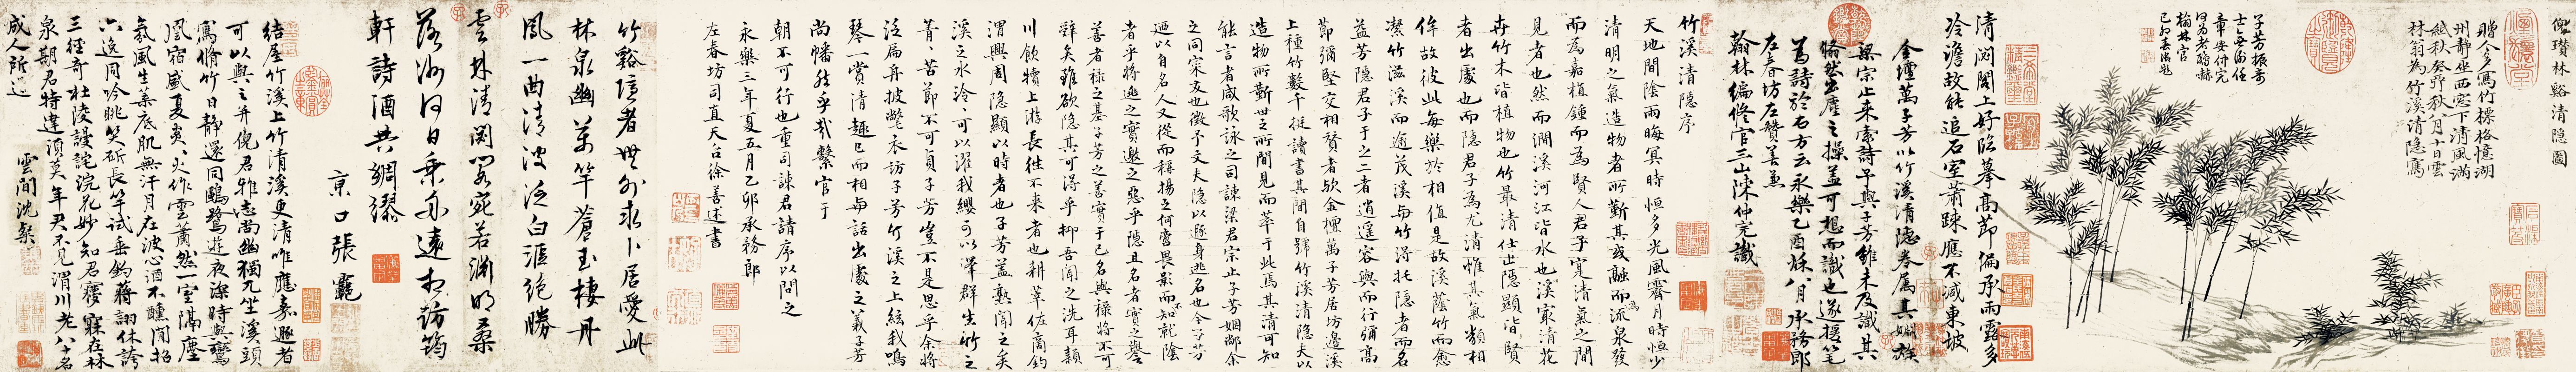 倪瓚林谿清隱圖
贈人多寫竹標格憶湖
州靜坐西窓下清風滿
紙秋癸丑秋八月十日雲
林翁為竹溪清隱寫
子芳振奇
士
章安仲完
翰林官
清閟閣上好臨摹高節偏承雨露多
冷澹故能追石室蕭踈應不減東坡
金壇萬子芳以竹溪清隱卷屬其姻族
梁宗止来索詩予與子芳雖未及識其
翛然出塵之操蓋可想而識也遂援筆
爲詩於右方云永樂乙酉秋八月承務郎
左春坊左贊善兼
翰林編修官三山陳仲完識
竹溪清隱序
天地間陰雨晦冥時恒多光風霽月時恒少
清明之氣造物者所靳其或融而流泉發
而為嘉植鍾而為賢人君子寔清氣之間
見者也然而澗溪河江皆水也溪最清花
卉竹木皆植物也竹最清仕止隱顯皆賢
者出處也而隱君子為尤清惟其氣類相
侔故彼此每樂於相值是故溪蔭竹而愈
潔竹滋溪而逾茂溪與竹得托隱者而名
益芳隱君子于之二者逍遥容與而行彌高
節彌堅交相賛者歟金壇萬子芳居坊邊溪
上種竹數千挺讀書其間自號竹溪清隱夫以
造物所靳世之所間見而萃于此焉其清可知
能言者咸歌詠之司諫梁君宗止子芳姻鄰余
之同寀友也徵予文夫隱以遯身逃名也今子芳
迺以自名人又從而稱揚之何啻畏影而不知就陰
者乎將逃之實邀之惡乎隱且名者實之譽
善者祿之基子芳之善實于己名與祿將不可
辭矣雖欲隱其可得乎抑吾聞之洗耳潁
川飲犢上游長往不来者也耕莘佐商釣
渭興周隱顯以時者也子芳盖熟聞之矣
溪之水泠泠可以濯我纓可以澤群生竹之
菁菁苦節不可貞子芳豈不是思乎余將
泛扁舟披氅衣訪子芳竹溪之上絃我鳴
琴一賞清趣已而相與話出處之義子芳
尚幡然乎哉繫官于
朝不可行也重司諫君請序以問之
永樂三年夏五月乙卯承務郎
左春坊司直天台徐善述書
竹谿隱者世外求卜居愛此
林泉幽萬竿蒼玉棲丹
鳳一曲清波泛白漚絶勝
雲林清閟閣宛若淵明桑
落洲何日乗舟遠相訪筠
軒詩酒共綢繆
京口張䶮
結屋竹溪上竹清溪更清唯應嘉遯者
可以與之并倪君雅志尚幽獨兀坐溪頭
寫脩竹日靜還同鷗鷺遊夜深時與鸞
鳳宿盛夏炎火作雲蕭然一室隔塵
氛風生葉底肌無汗月在波心酒不醺閒招
六逸同吟眺笑斫長竿試垂釣蔣詡休誇
三徑奇杜陵謾詫浣花妙知君寤寐在林
泉期君特達須英年君不見渭川老八十名
成人所᠎
雲間沈粲